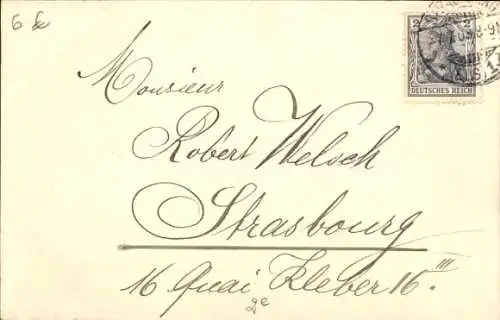 6
2 2
DEUTSCHES REICH
Monsieur
Robert Welsch
Strasbourg
16 Quai Kleber 16 III
2e